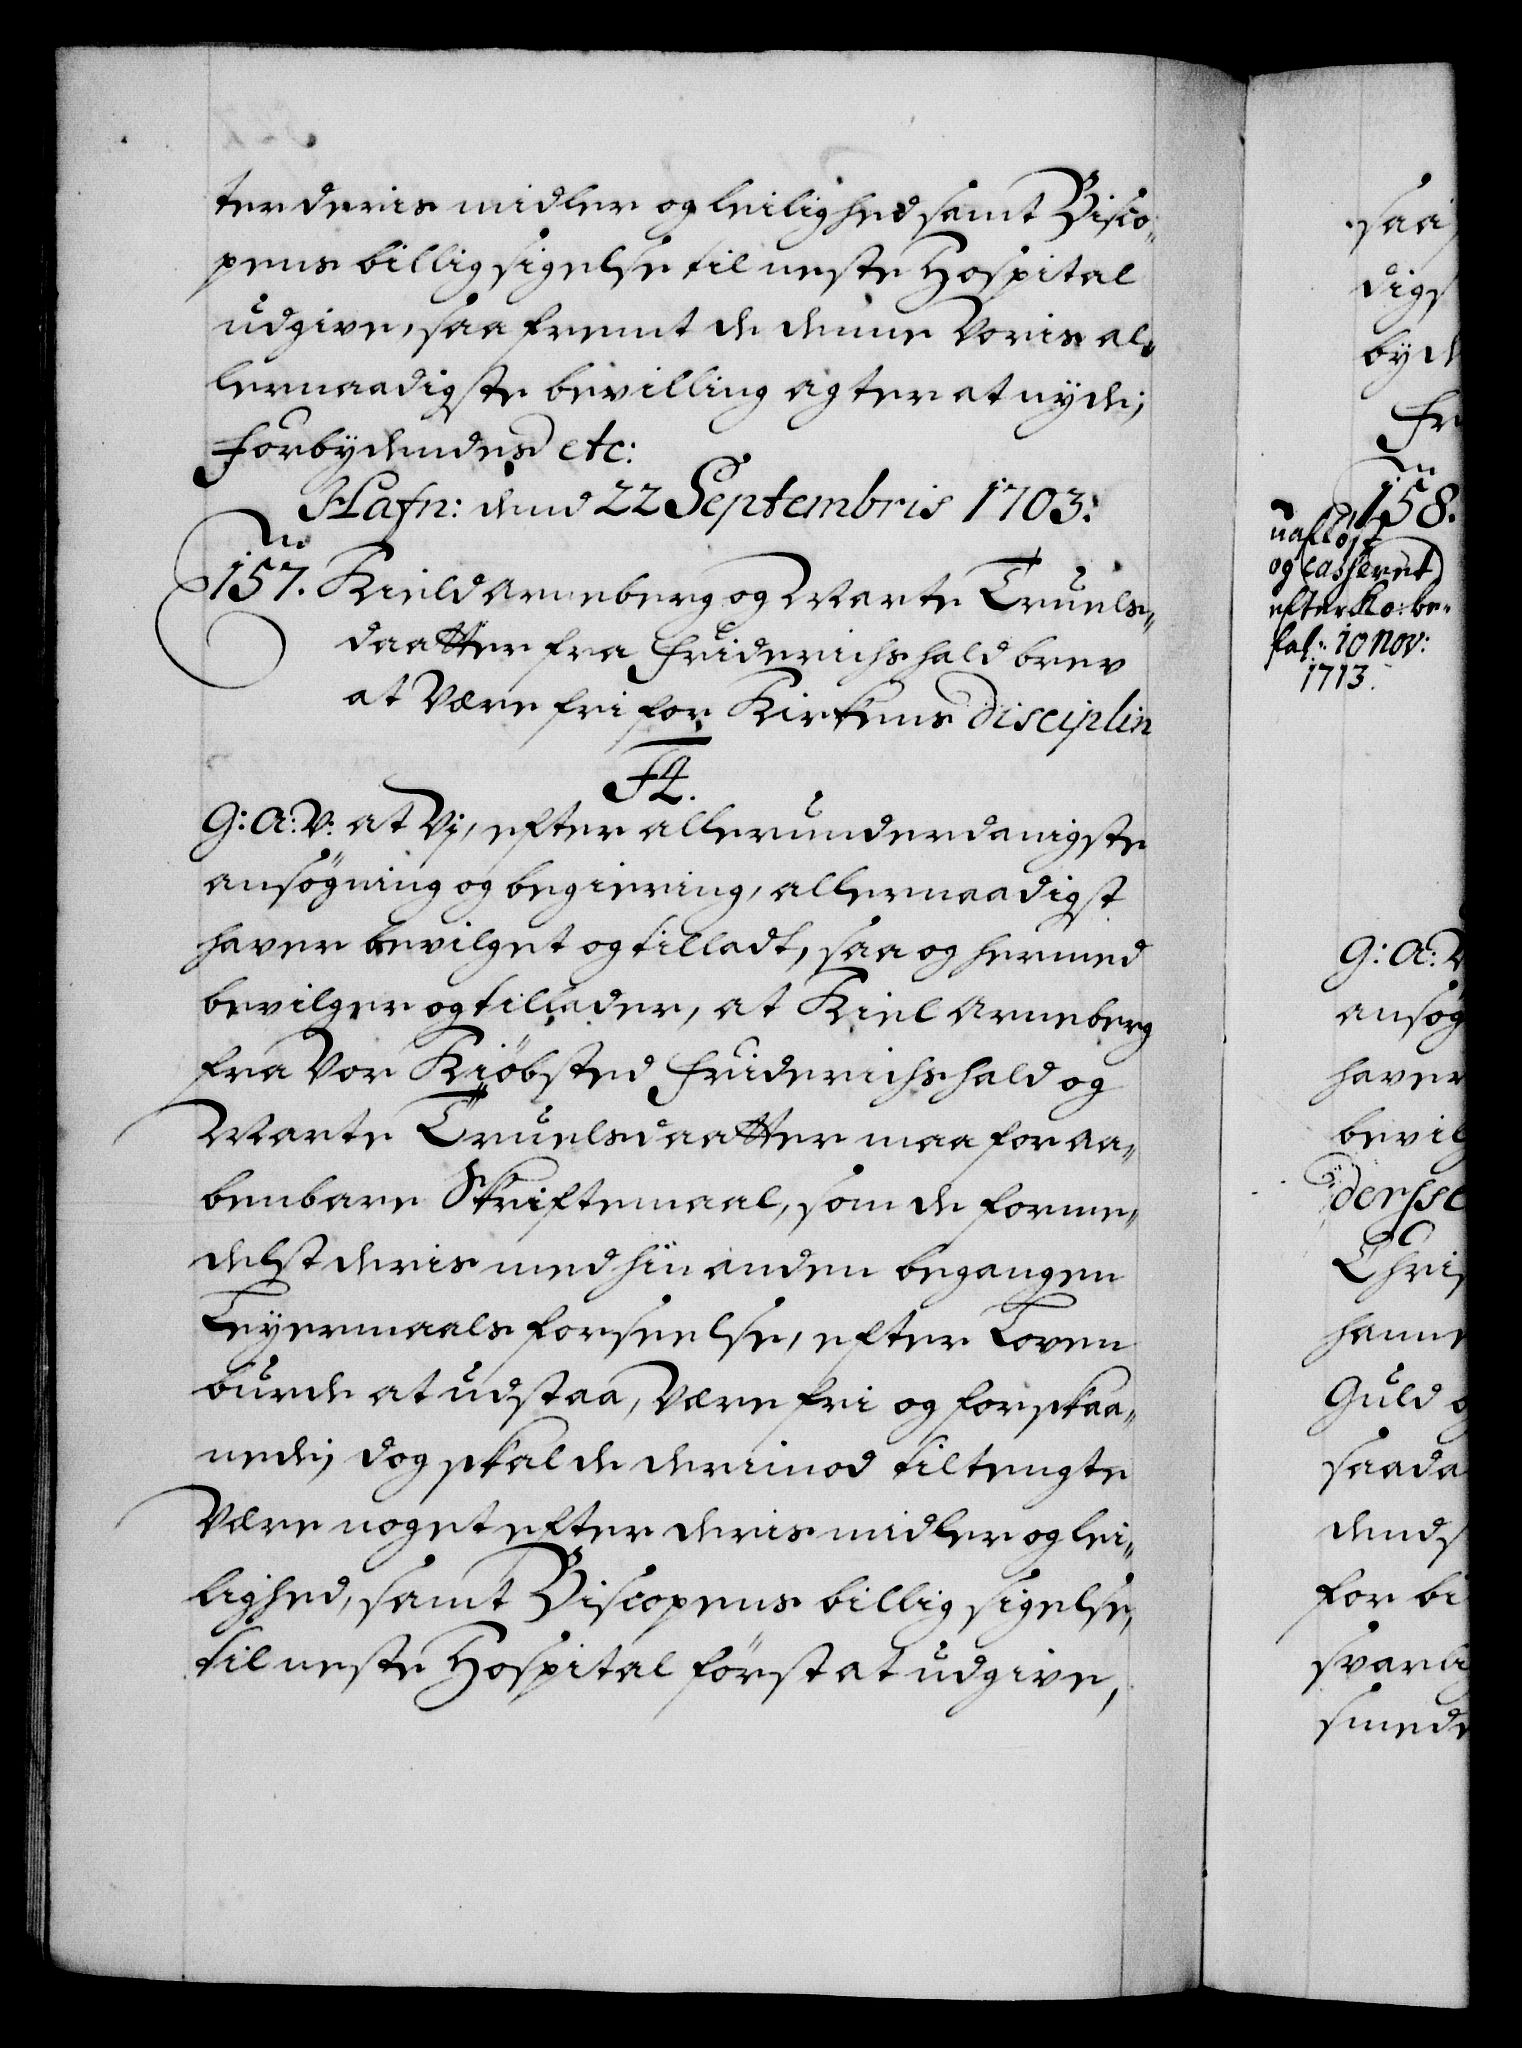 ter deris midler og leilighed samt Bisco„
pens billig sigelse til neste Hospital
udgive, saa fremt de denne Voris al„
lernaadigste bevilling agter at nyde;
Forbydendes etc:
Hafn: dend 22 Septembris 1703.
157. Kield Arneberg og Marte Truels„
daatter fra Friderichshald brev
at Være fri for Kirkens disciplin
F4.
G: A: V: at Vj, efter allerunderdanigste
ansögning og begiering, allernaadigst
haver bevilget og tilladt, saa og hermed
bevilger og tillader, at Kiel Arneberg
fra Vor Kiöbsted Friderichshald og
Marte Truelsdaatter maa for aa„
benbare Skriftemaal, som de forme„
delst deris med hin anden begangen
Leyermaals forseelse, efter Loven
burde at udstaa, Være fri og forskaa„
nede; dog skal de derimod tiltengte
Være noget efter deris midler og lei„
lighed, samt Biscopens billig sigelse,
til neste Hospital först at udgive,
saa
digs
byde
Fr
158.
og Casseret
efter Ko: be„
fal: 10 Nov:
1713.
G: A: V
ansög
haver
bevilg
derSse
Chris
hanne
Guld o
saada
dends
for bi
svarli
smede